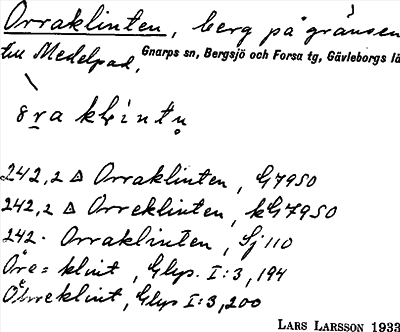 Orraklinten, berg på gränsen
till Medelpad. Gnarps sn, Bergsjö och Forsa tg, Gävleborgs lä
242,2 △ Orraklinten, G7950
242,2 △ Orreklinten, kG7950
242· Orraklinten, Sj 110
Åre=klint, Glyp. I:3, 194
Öhrreklint, Glyp I:3, 200
LARS LARSSON 1933